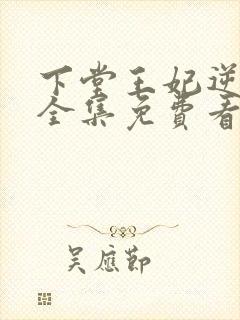 下堂王妃逆
全集免费看
吴应节